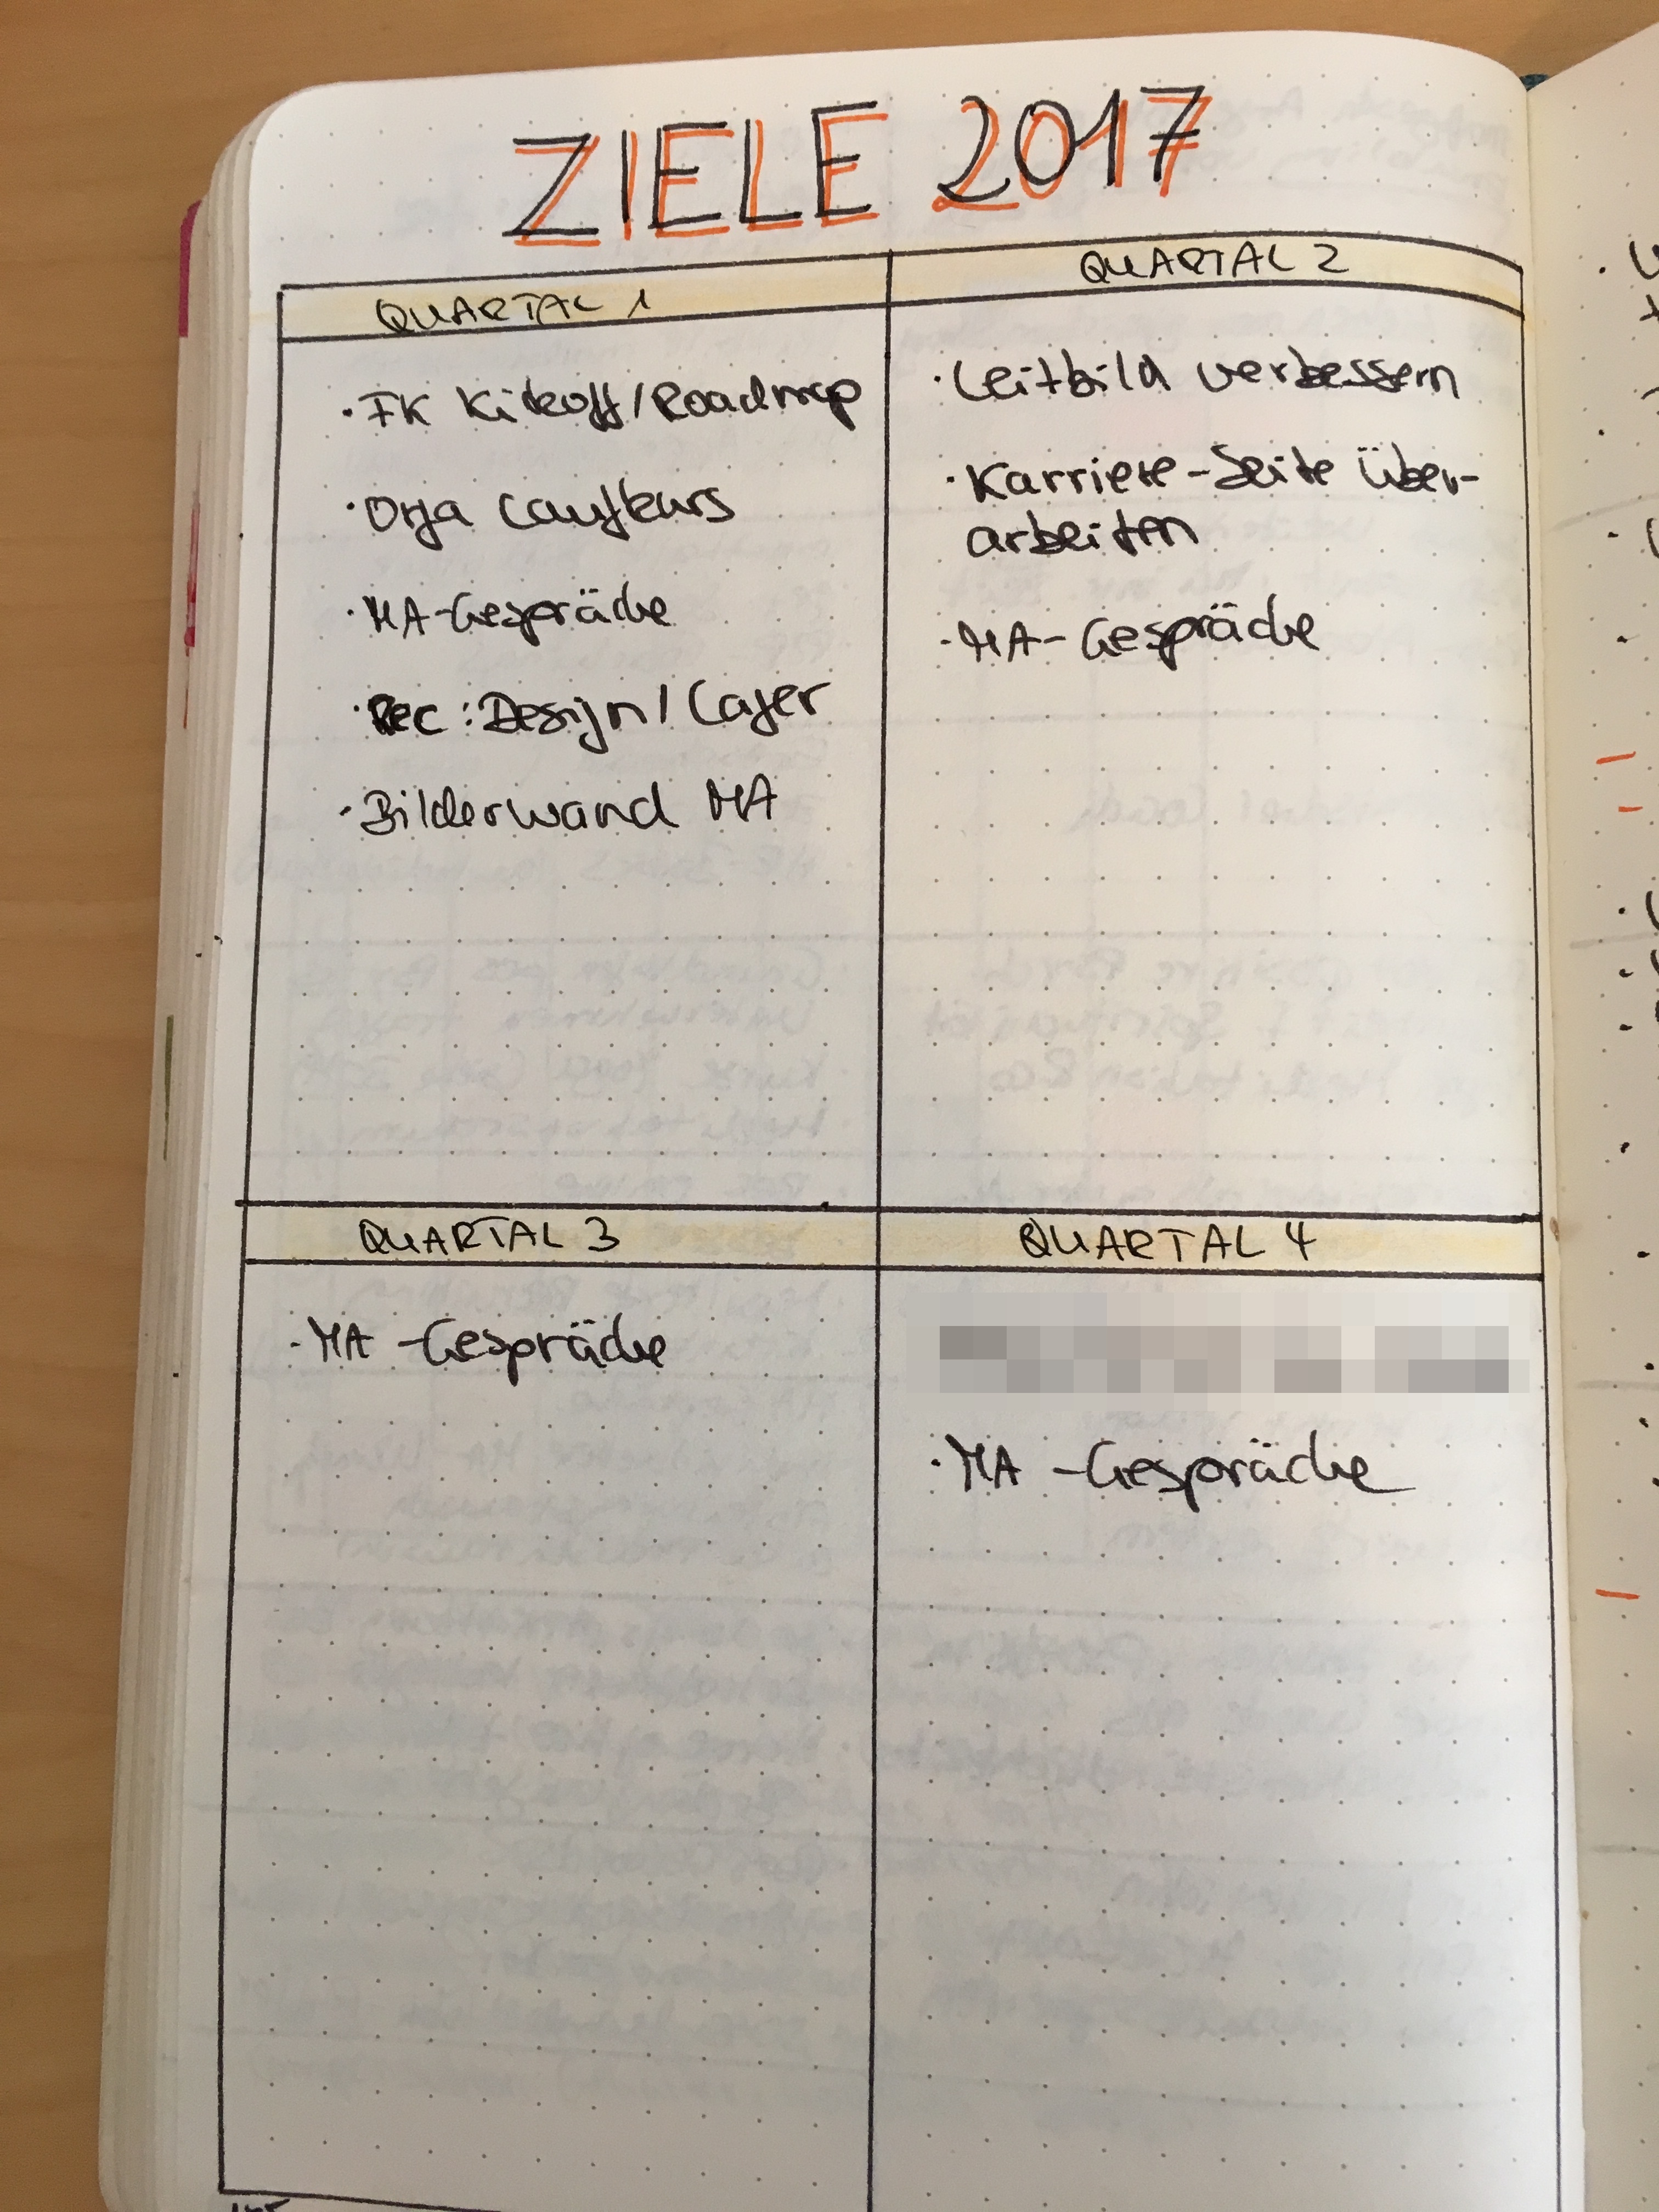 ZIELE 2017
QUARTAL 1
· FK Kickoff/Roadmap
· Orga Laufkurs
· MA-Gespräche
· Rec: Design/Lager
· Bilderwand MA
QUARTAL 2
· Leitbild verbessern
· Karriere-Seite über-
arbeiten
· MA-Gespräche
QUARTAL 3
· MA-Gespräche
QUARTAL 4
· MA-Gespräche